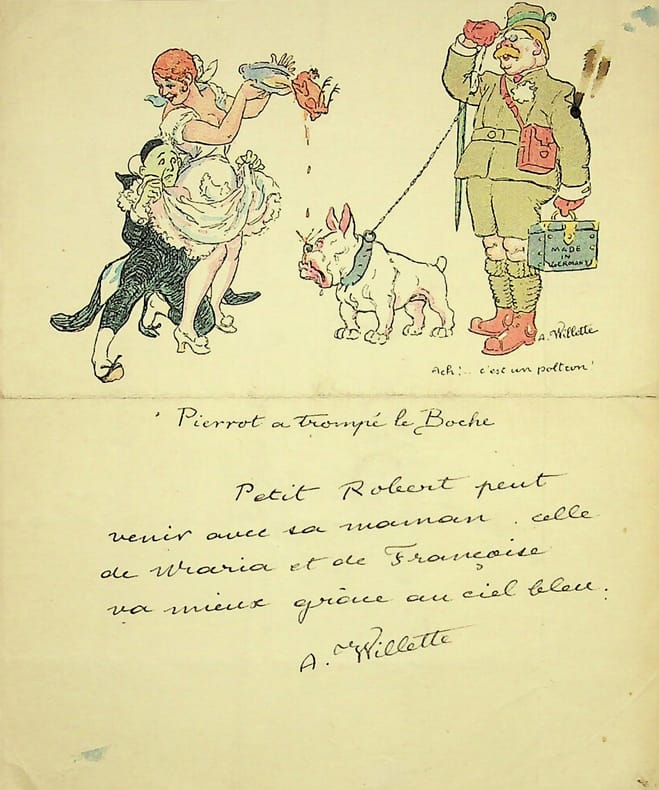 MADE
IN
GERMANY
A. Willette
Ach!.. c'est un poltron!
Pierrot a trompé le Boche
Petit Robert peut
venir avec sa maman. celle
de Maria et de Françoise
va mieux grâce au ciel bleu.
A. Willette